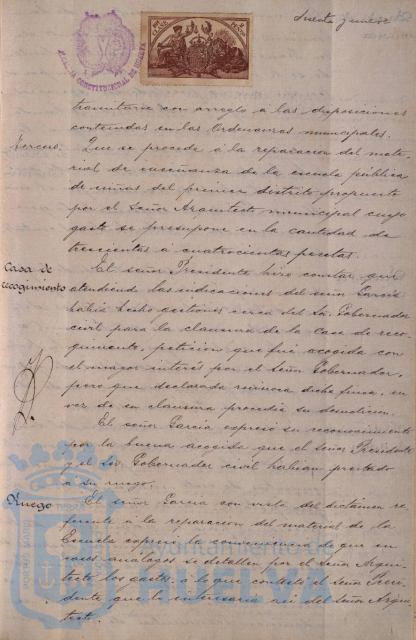 Sesenta y nueve
ALCALDIA CONSTITUCIONAL DE HUELVA
tramitarse con arreglo á las disposiciones
contenidas en las Ordenanzas municipales.
Tercero. Que se proceda á la reparacion del mate-
rial de enseñanza de la escuela pública
de niñas del primer distrito propuesto
por el Señor Arquitecto municipal cuyo
gasto se presupone en la cantidad de
trescientas á cuatrocientas pesetas.
Casa de recogimiento El señor Presidente hizo constar que
atendiendo las indicaciones del señor García
habia hecho gestiones cerca del Sr. Gobernador
civil para la clausura de la Casa de reco-
gimiento, peticion que fué acogida con
el mayor interés por el Señor Gobernador,
pero que declarada ruinosa dicha finca, en
vez de su clausura procedia su demolicion.
El señor García expresó su reconocimiento
por la buena acogida que el señor Presidente
y el Sr. Gobernador civil habian prestado
á su ruego.
Ruego El señor García con vista del dictámen re-
ferente á la reparacion del material de la
Escuela expresó la conveniencia de que en
casos análogos se detallen por el señor Arqui-
tecto los gastos, á lo que contestó el señor Presi-
dente que lo interesaria así del señor Arqui-
tecto.
Ayuntamiento de
HUELVA